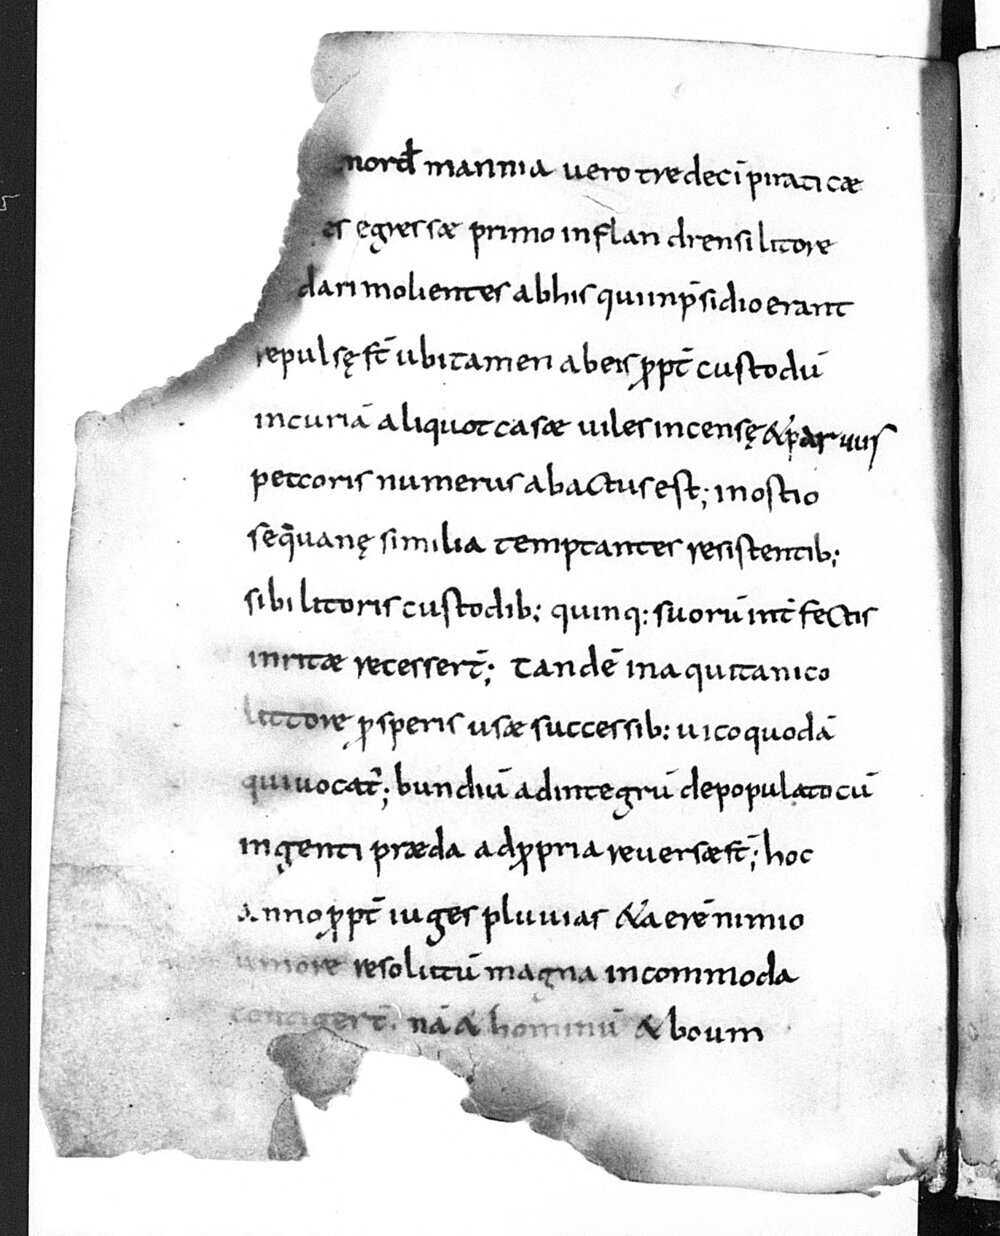 nord mannia uero tredecī piraticæ
es egressæ primo in flan drensi litore
dari molientes ab his qui in p̄sidio erant
repulsę st̄ ubi tamen ab eis ꝓpt̄ custodū
incuriā aliquot casæ uiles incensę & paruus
petcoris numerus abactus est; in ostio
seq̄uanę similia temptantes resistentib;
sibi litoris custodib; quinq: suorū int̄fectis
inritæ recesser̄t; tandē in aquitanico
littore ꝓsperis usæ successib: uico quodā
qui uocat̄; bundiū ad integrū depopulato cū
ingenti præda ad ꝓpria reuersæ st̄; hoc
anno ꝓpt̄ iuges pluuias & aerē nimio
umore resolutū magna incommoda
contiger̄t. nā & hominū & boum